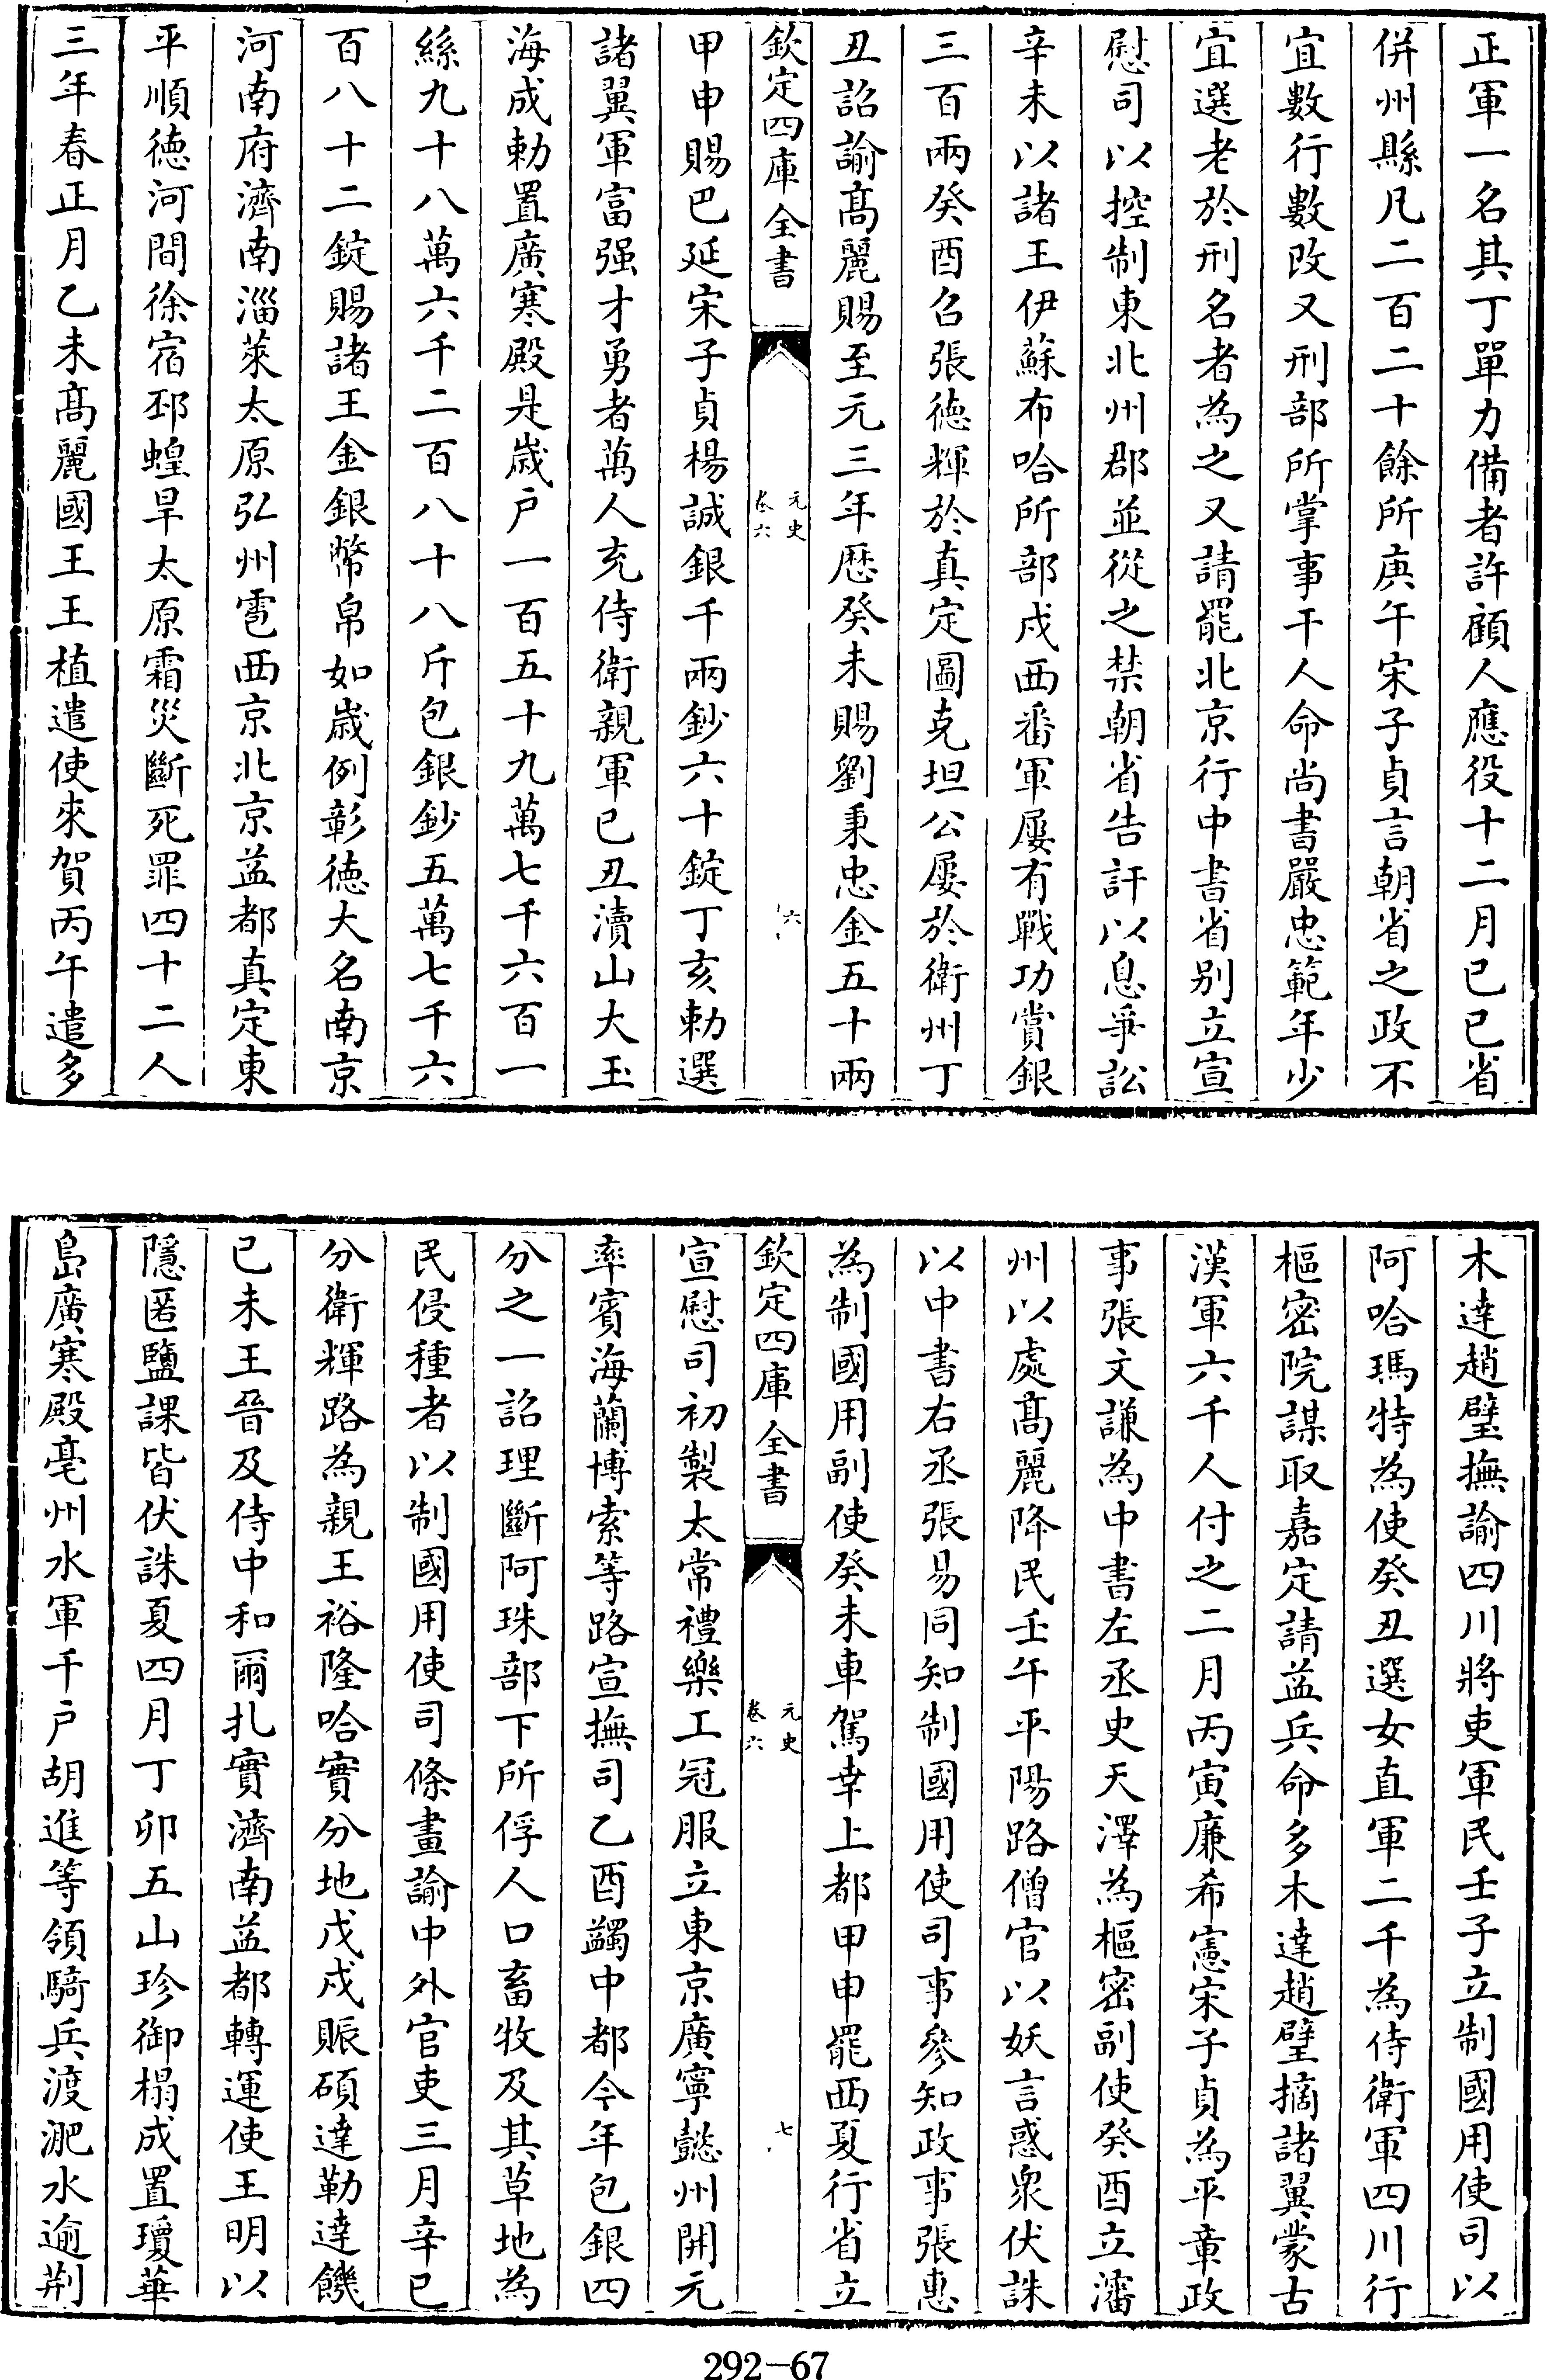 正軍一名其丁單力備者許顧人應役十二月已已省
併州縣凡二百二十餘所庚午宋子貞言朝省之政不
宜數行數改又刑部所掌事干人命尚書嚴忠範年少
宜選老於刑名者為之又請罷北京行中書省别立宣
慰司以控制東北州郡並從之禁朝省告訐以息爭訟
辛未以諸王伊蘇布哈所部戍西番軍屢有戰功賞銀
三百兩癸酉召張徳輝於真定圖克坦公履於衛州丁
丑詔諭髙麗賜至元三年厯癸未賜劉秉忠金五十兩
欽定四庫全書
元史
卷六
六
甲申賜巴延宋子貞楊誠銀千兩鈔六十錠丁亥勅選
諸翼軍富强才勇者萬人充侍衛親軍已丑瀆山大玉
海成勅置廣寒殿是歲户一百五十九萬七千六百一
絲九十八萬六千二百八十八斤包銀鈔五萬七千六
百八十二錠賜諸王金銀幣帛如歲例彰徳大名南京
河南府濟南淄萊太原弘州雹西京北京益都真定東
平順徳河間徐宿邳蝗旱太原霜災斷死罪四十二人
三年春正月乙未髙麗國王王植遣使來賀丙午遣多
木達趙璧撫諭四川將吏軍民壬子立制國用使司以
阿哈瑪特為使癸丑選女直軍二千為侍衛軍四川行
樞密院謀取嘉定請益兵命多木達趙璧摘諸翼蒙古
漢軍六千人付之二月丙寅廉希憲宋子貞為平章政
事張文謙為中書左丞史天澤為樞密副使癸酉立瀋
州以處髙麗降民壬午平陽路僧官以妖言惑衆伏誅
以中書右丞張易同知制國用使司事參知政事張惠
為制國用副使癸未車駕幸上都甲申罷西夏行省立
欽定四庫全書
元史
卷六
七
宣慰司初製太常禮樂工冠服立東京廣寧懿州開元
率賓海蘭博索等路宣撫司乙酉蠲中都今年包銀四
分之一詔理斷阿珠部下所俘人口畜牧及其草地為
民侵種者以制國用使司條畫諭中外官吏三月辛巳
分衛輝路為親王裕隆哈實分地戊戍賑碩達勒達饑
已未王晉及侍中和爾扎實濟南益都轉運使王明以
隱匿鹽課皆伏誅夏四月丁卯五山珍御榻成置瓊華
島廣寒殿亳州水軍千户胡進等領騎兵渡淝水逾荆
292-67